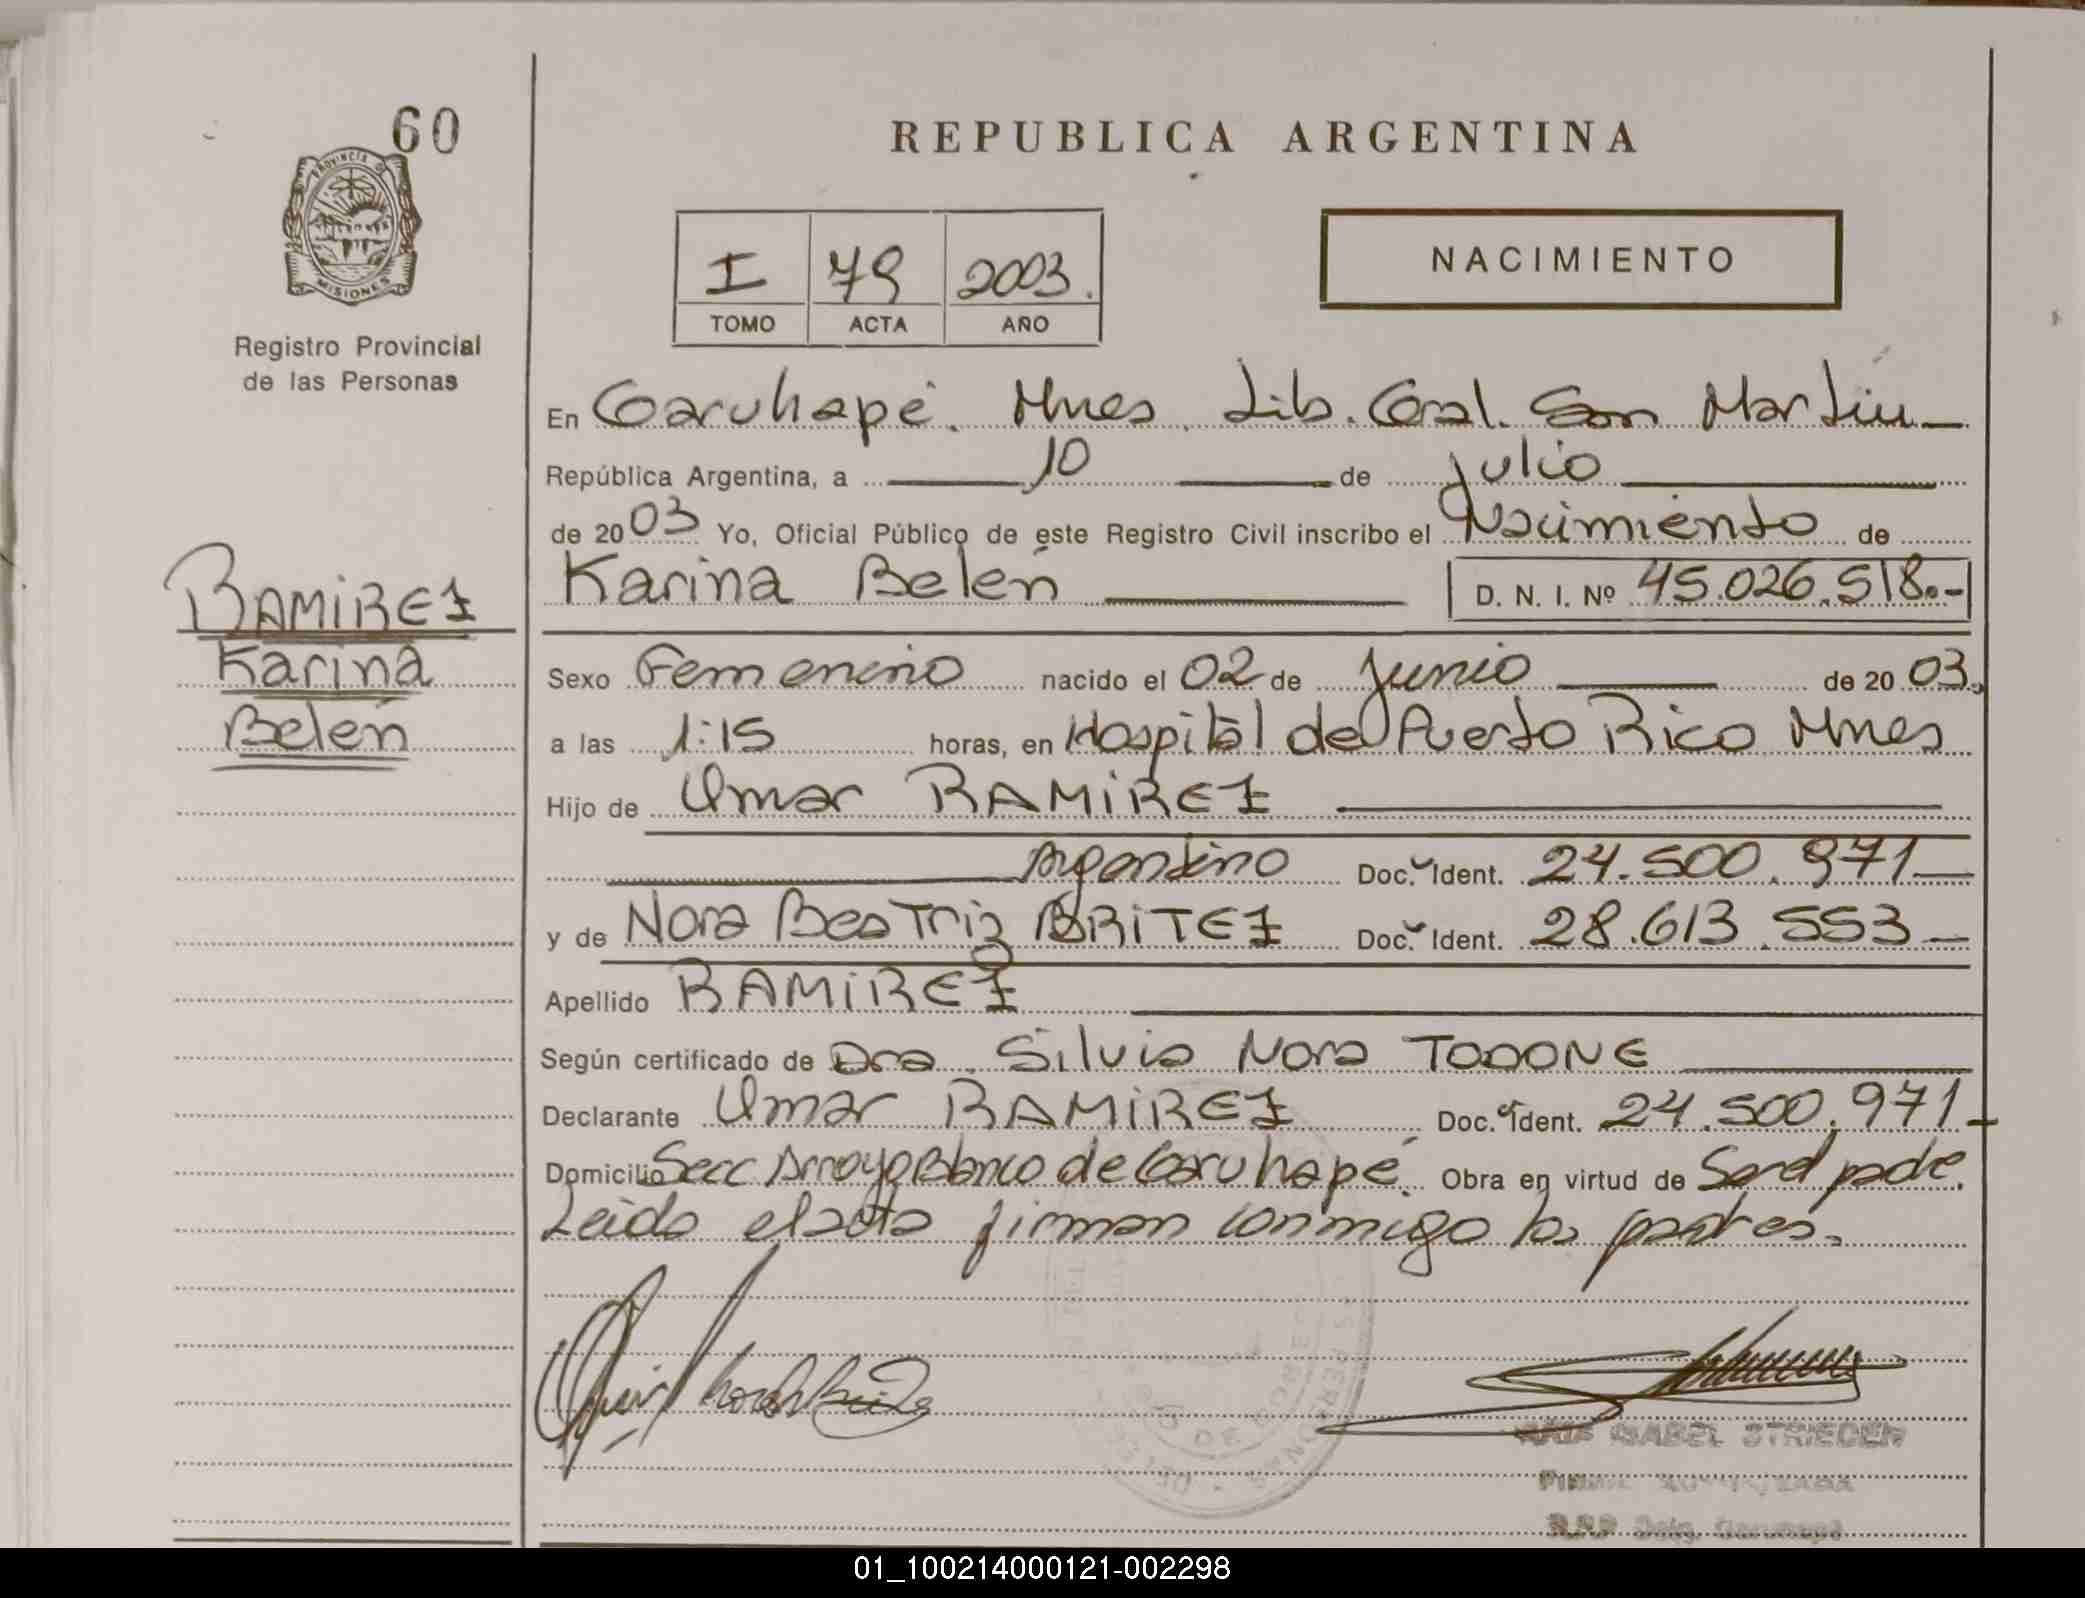 60
REPUBLICA ARGENTINA
PROVINCIA DE
MISIONES
Registro Provincial
de las Personas
I 79 2003.
TOMO ACTA AÑO
NACIMIENTO
En Caruhapé. Mnes. Lib. Gral. San Martín
República Argentina, a 10 de Julio
de 20 03 Yo, Oficial Público de este Registro Civil inscribo el Nacimiento de
Karina Belén D. N. I. Nº 45.026.518.-
RAMIREZ
Karina
Belén
Sexo Femenino nacido el 02 de Junio de 20 03.
a las 1:15 horas, en Hospital de Puerto Rico Mnes
Hijo de Omar RAMIREZ
Argentino Doc. Ident. 24.500.971
y de Nora Beatriz BRITEZ Doc. Ident. 28.613.553
Apellido RAMIREZ
Según certificado de Dra. Silvia Nora TODONE
Declarante Omar RAMIREZ Doc. Ident. 24.500.971
Domicilio Secc Arroyo Blanco de Caruhapé. Obra en virtud de Ser el padre.
Leída el acta firman conmigo los padres.
ISABEL STRIEDER
01_100214000121-002298